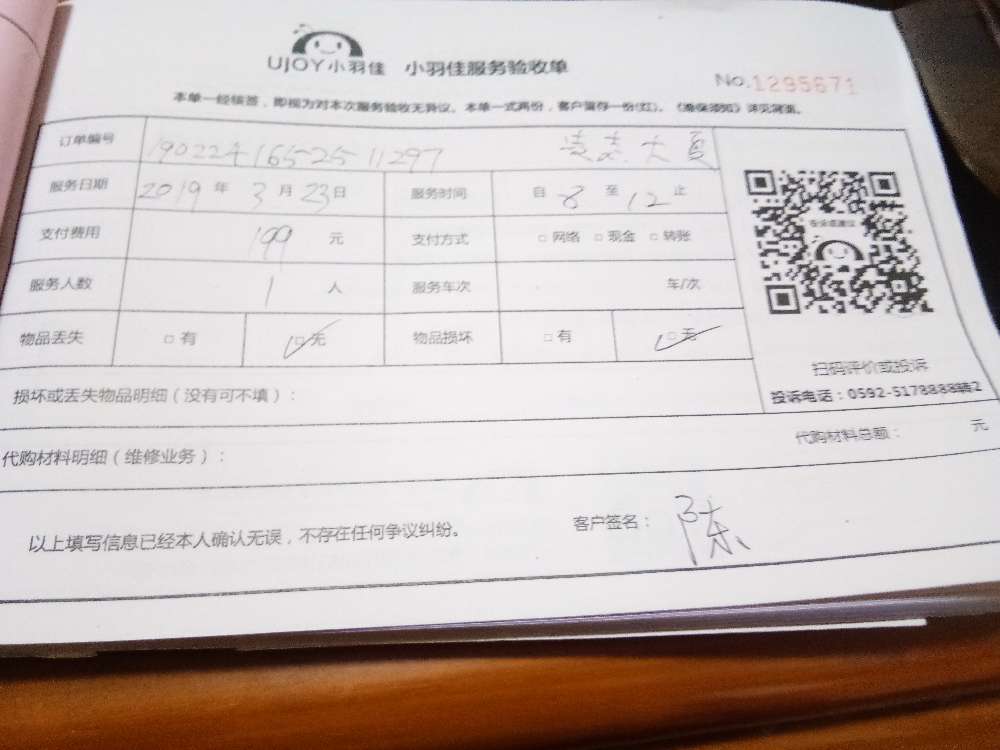 UJOY小羽佳 小羽佳服务验收单
No.1295671
本单一经核签，即视为对本次服务验收无异议。本单一式两份，客户留存一份(红)。
订单编号 19022416525 11297 大夏
服务日期 2019 年 3 月 23 日 服务时间 自 8 至 12 止
支付费用 199 元 支付方式 □ 网络 □ 现金 □ 转账
服务人数 1 人 服务车次 车/次
物品丢失 □ 有 □ 无 物品损坏 □ 有 □ 无
扫码评价或投诉
投诉电话：0592-5178888转2
损坏或丢失物品明细（没有可不填）：
代购材料明细（维修业务）： 代购材料总额： 元
以上填写信息已经本人确认无误，不存在任何争议纠纷。 客户签名： 陈